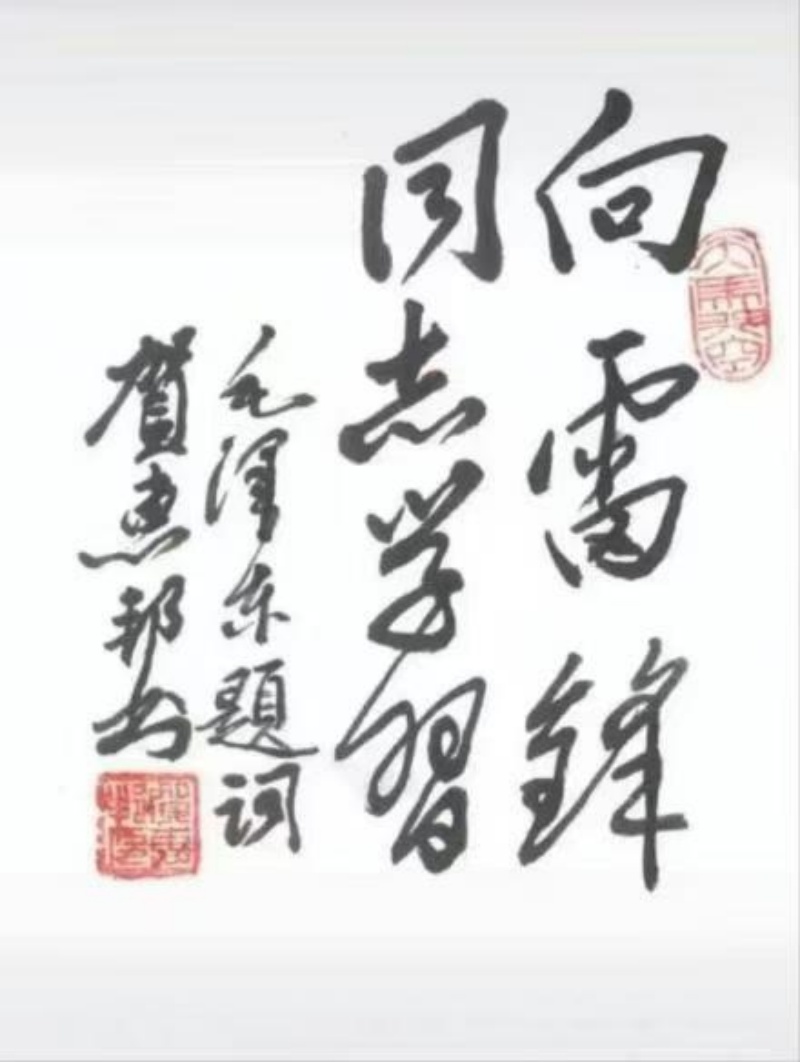 向雷锋
同志学習
毛泽东題词
贺惠邦书